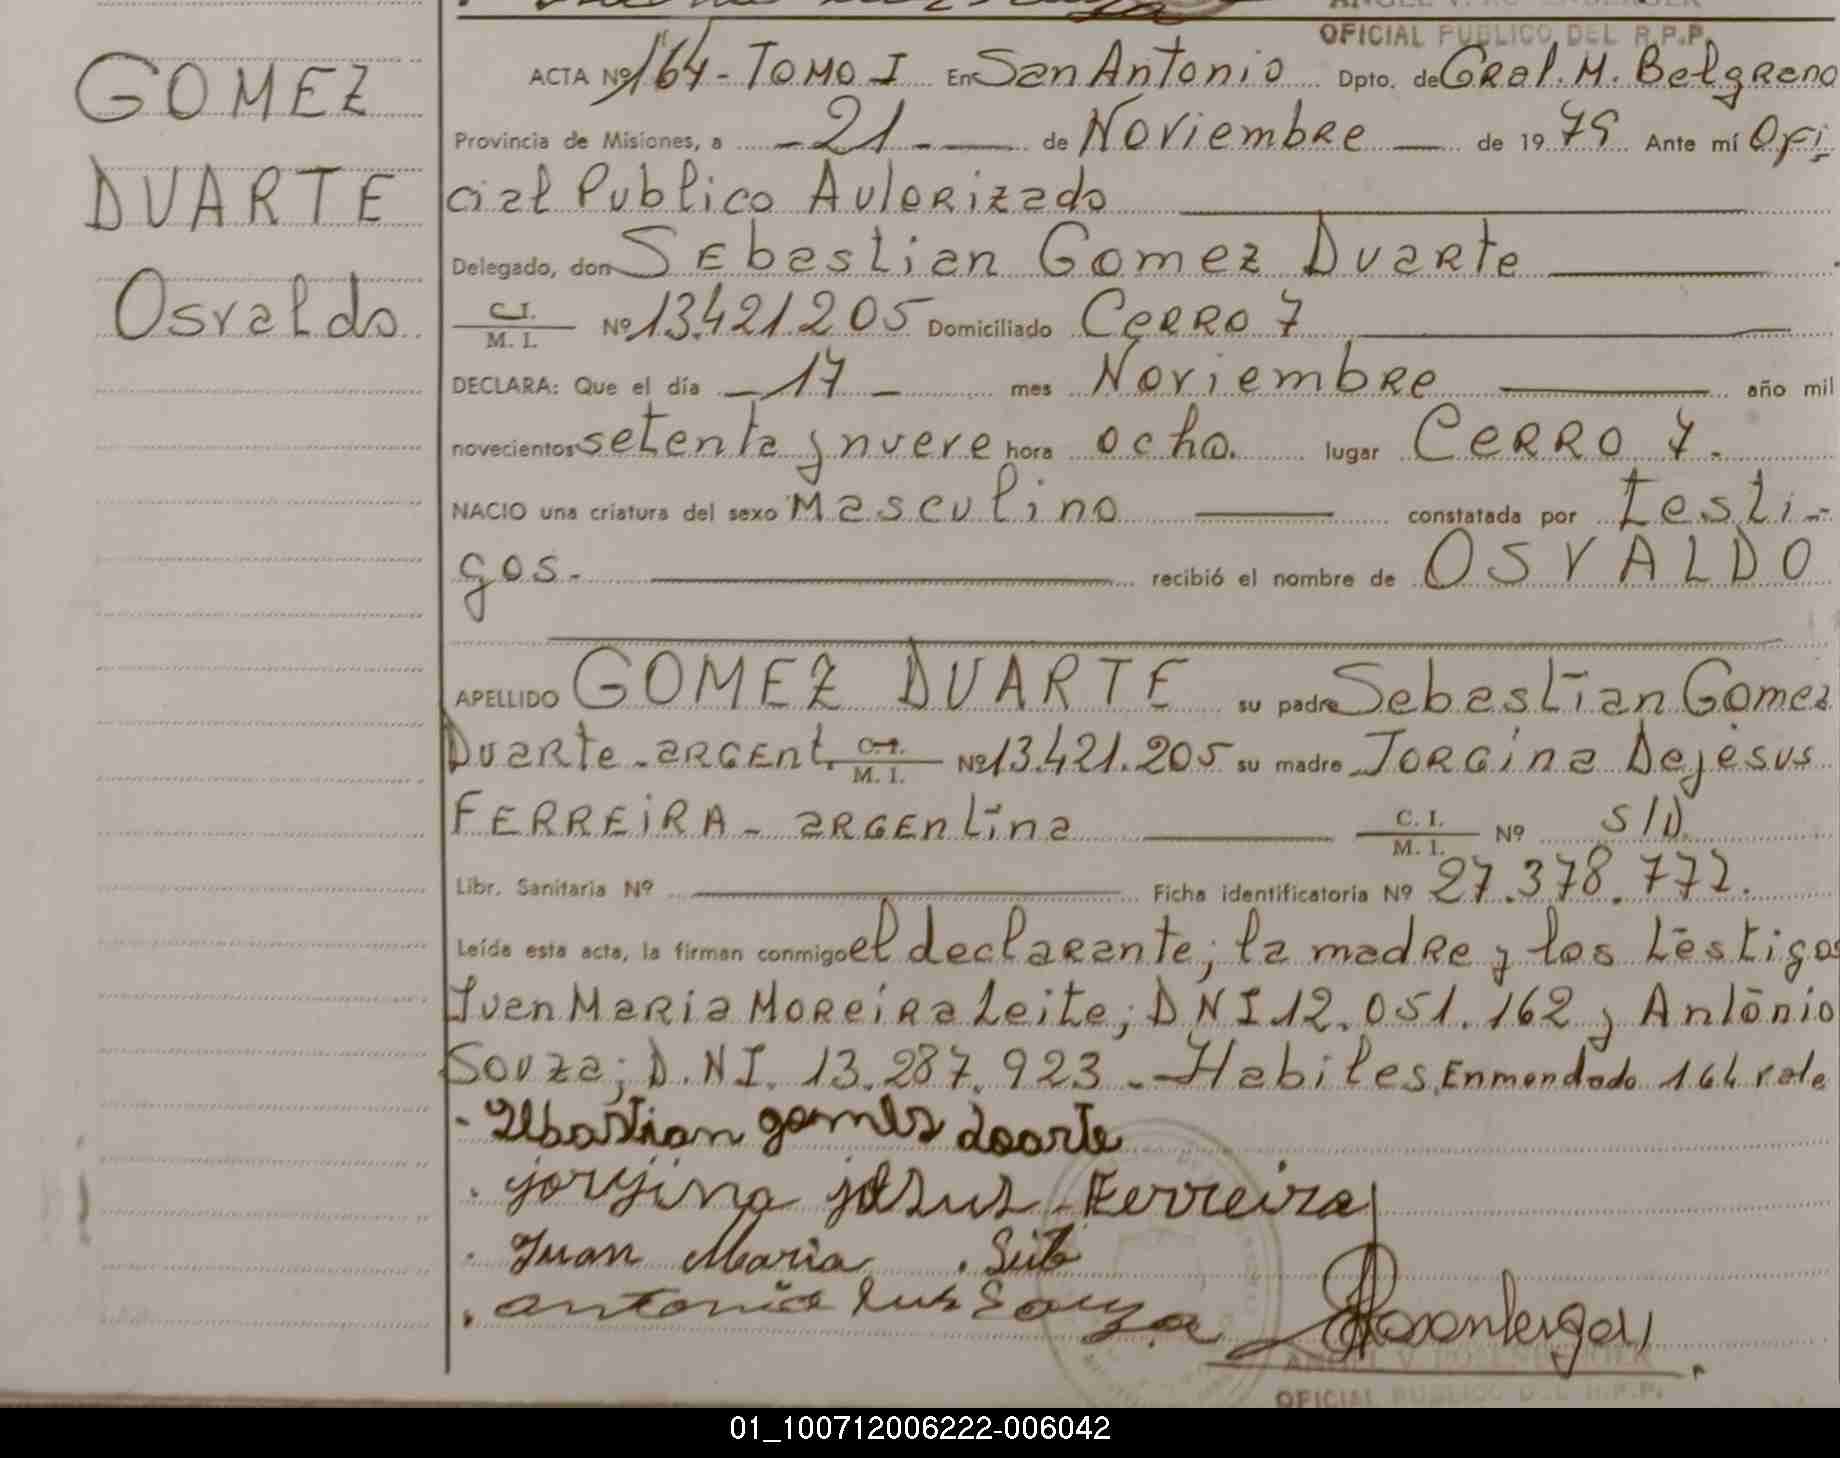 GOMEZ
DUARTE
Osvaldo
OFICIAL PUBLICO DEL R.P.P.
ACTA Nº 164 - TOMO I En San Antonio Dpto. de Gral. M. Belgrano
Provincia de Misiones, a - 21 - de Noviembre de 19 79 Ante mí Ofi
cial Publico Autorizado
Delegado, don Sebastian Gomez Duarte
C.I. M. I. Nº 13.421.205 Domiciliado Cerro 7
DECLARA: Que el día - 17 - mes Noviembre año mil
novecientos setenta y nueve hora ocho. lugar Cerro 7.
NACIO una criatura del sexo Masculino constatada por testi-
gos. recibió el nombre de OSVALDO
APELLIDO GOMEZ DUARTE su padre Sebastian Gomez
Duarte - argent. C.I. M. I. Nº 13.421.205 su madre Jorgina Dejesus
FERREIRA - argentina C. I. M. I. Nº S/D
Libr. Sanitaria Nº Ficha identificatoria Nº 27.378.772.
Leída esta acta, la firman conmigo el declarante; la madre y los testigos
Juan Maria Moreira Leite; DNI 12.051.162 y Antonio
Souza; D.NI. 13.287.923 - Habiles. Enmendado 164 vale
- Sebastian gomes doarte
. jorjina jesus Ferreira
. Juan Maria . Leite
. antonio luis Souza
ANGEL V. ROSENBERGER
OFICIAL PUBLICO DEL R.P.P.
01_100712006222-006042